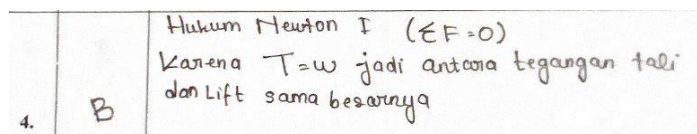 Hukum Newton I (ΣF=0)
Karena T=w jadi antara tegangan tali
dan Lift sama besarnya
4. B